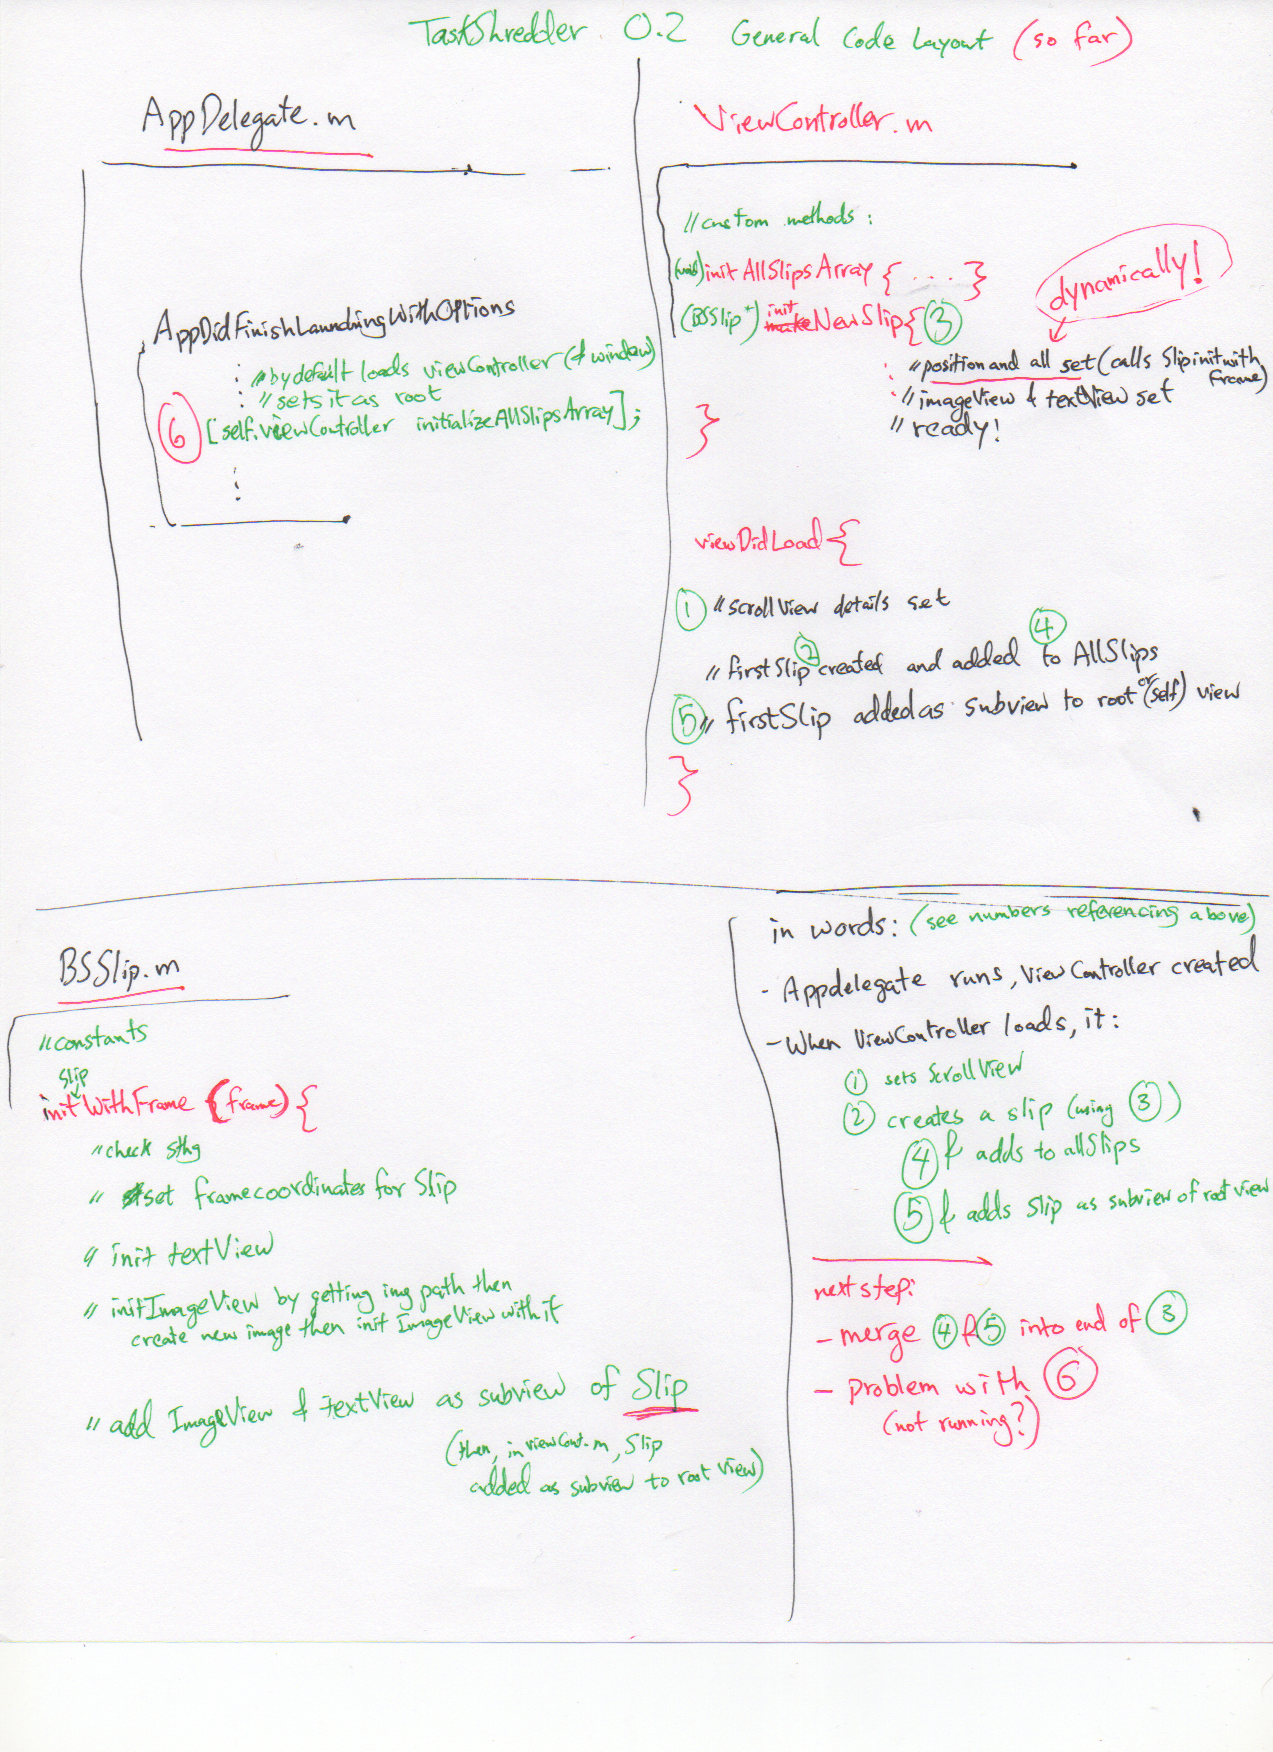 TastShredder 0.2 General Code Layout (so far)
AppDelegate.m
AppDidFinishLaunchingWithOptions
// by default loads viewController (& window)
// sets it as root
6 [self.viewController initializeAllSlipsArray];
ViewController.m
// custom methods:
(void) initAllSlipsArray { ... }
dynamically!
(BSSlip*) make init NewSlip { 3
// position and all set (calls Slip initwith Frame)
// imageView & textView set
// ready!
}
viewDidLoad {
1 // scrollView details set
// firstSlip 2 created and added 4 to AllSlips
5 // firstSlip added as subview to root or (self) view
}
BSSlip.m
// constants
slip
initWithFrame (frame) {
// check sthg
// set frame coordinates for Slip
// init textView
// init ImageView by getting img path then
create new image then init ImageView with it
// add ImageView & textView as subview of Slip
(then, in viewCont.m, Slip
added as subview to root view)
in words: (see numbers referencing above)
- Appdelegate runs, ViewController created
- When ViewController loads, it:
1 sets ScrollView
2 creates a slip (using 3)
4 & adds to allSlips
5 & adds Slip as subview of root view
next step:
- merge 4 & 5 into end of 3
- problem with 6
(not running?)